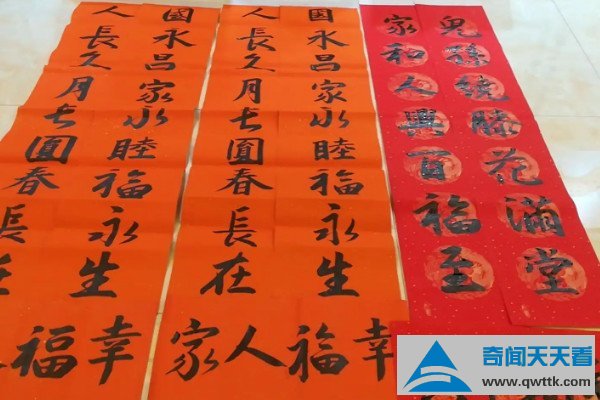 兒孫繞膝花滿堂
家和人興百福至
國永昌家永睦福永生
人長久月长圓春長在
幸福人家
國永昌家永睦福永生
人長久月长圓春長在
幸福
奇闻天天看
www.qwttk.com